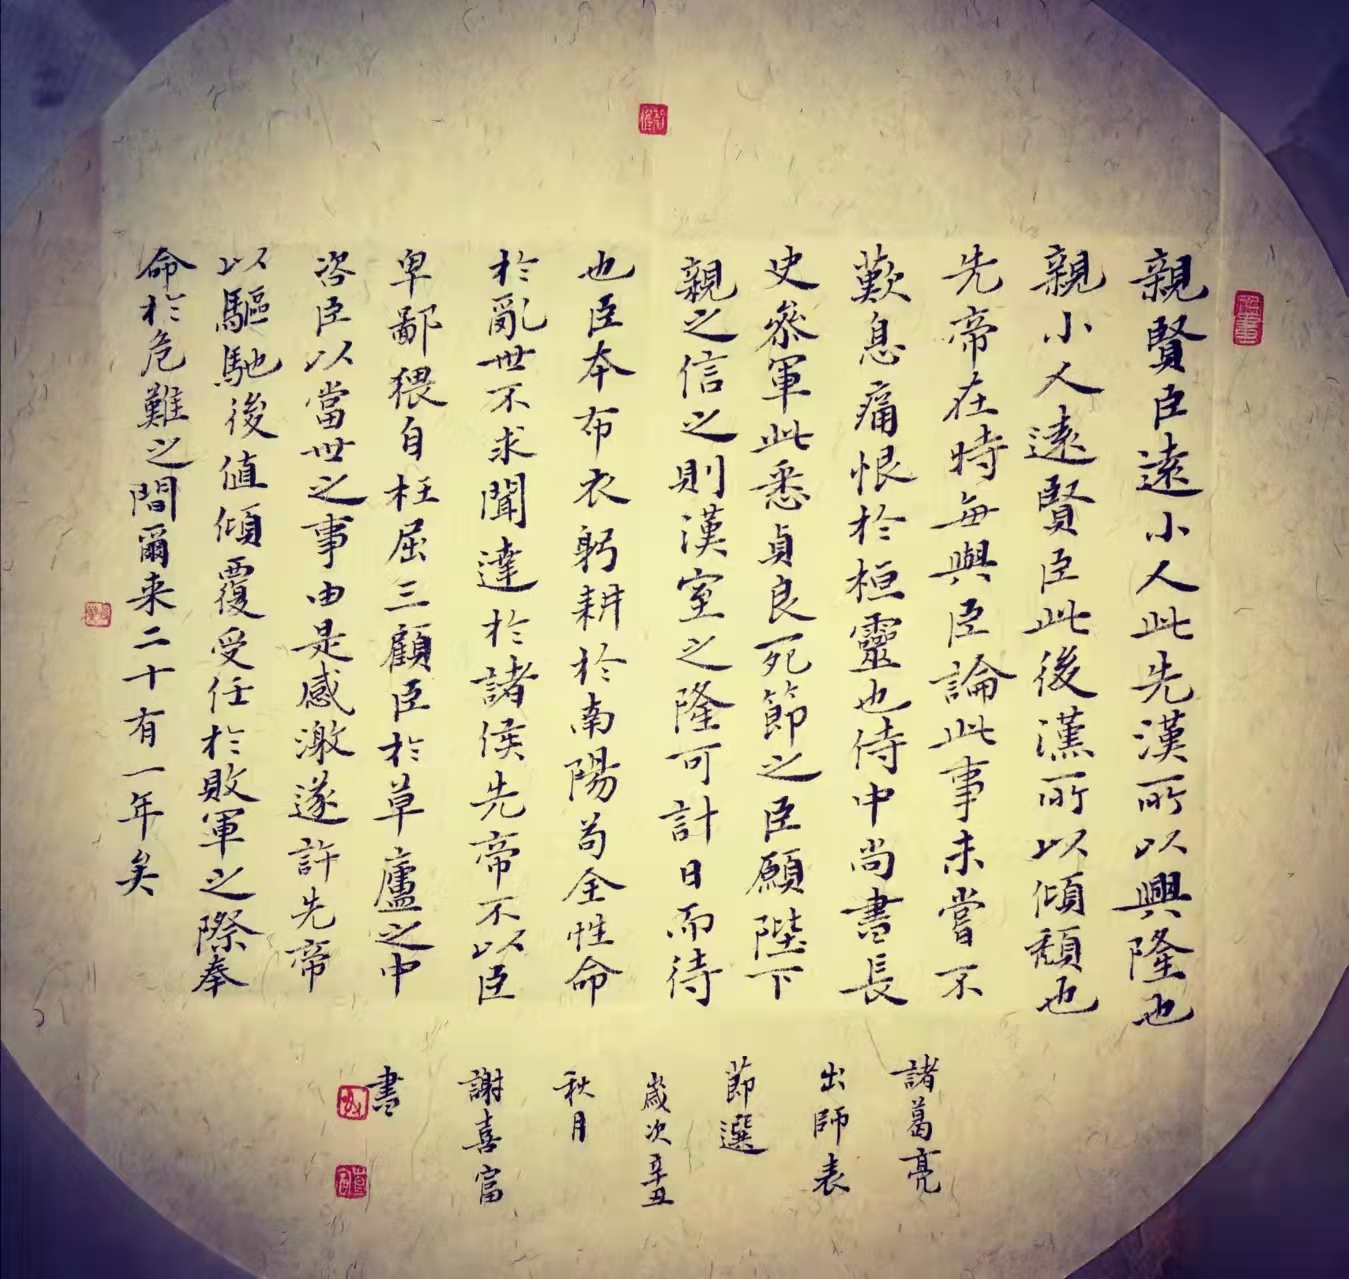 親賢臣遠小人此先漢所以興隆也
親小人遠賢臣此後漢所以傾頹也
先帝在時每與臣論此事未嘗不
歎息痛恨於桓靈也侍中尚書長
史參軍此悉貞良死節之臣願陛下
親之信之則漢室之隆可計日而待
也臣本布衣躬耕於南陽苟全性命
於亂世不求聞達於諸侯先帝不以臣
卑鄙猥自枉屈三顧臣於草廬之中
咨臣以當世之事由是感激遂許先帝
以驅馳後值傾覆受任於敗軍之際奉
命於危難之間爾来二十有一年矣
諸葛亮
出師表
節選
歲次辛丑
秋月
謝喜富
書